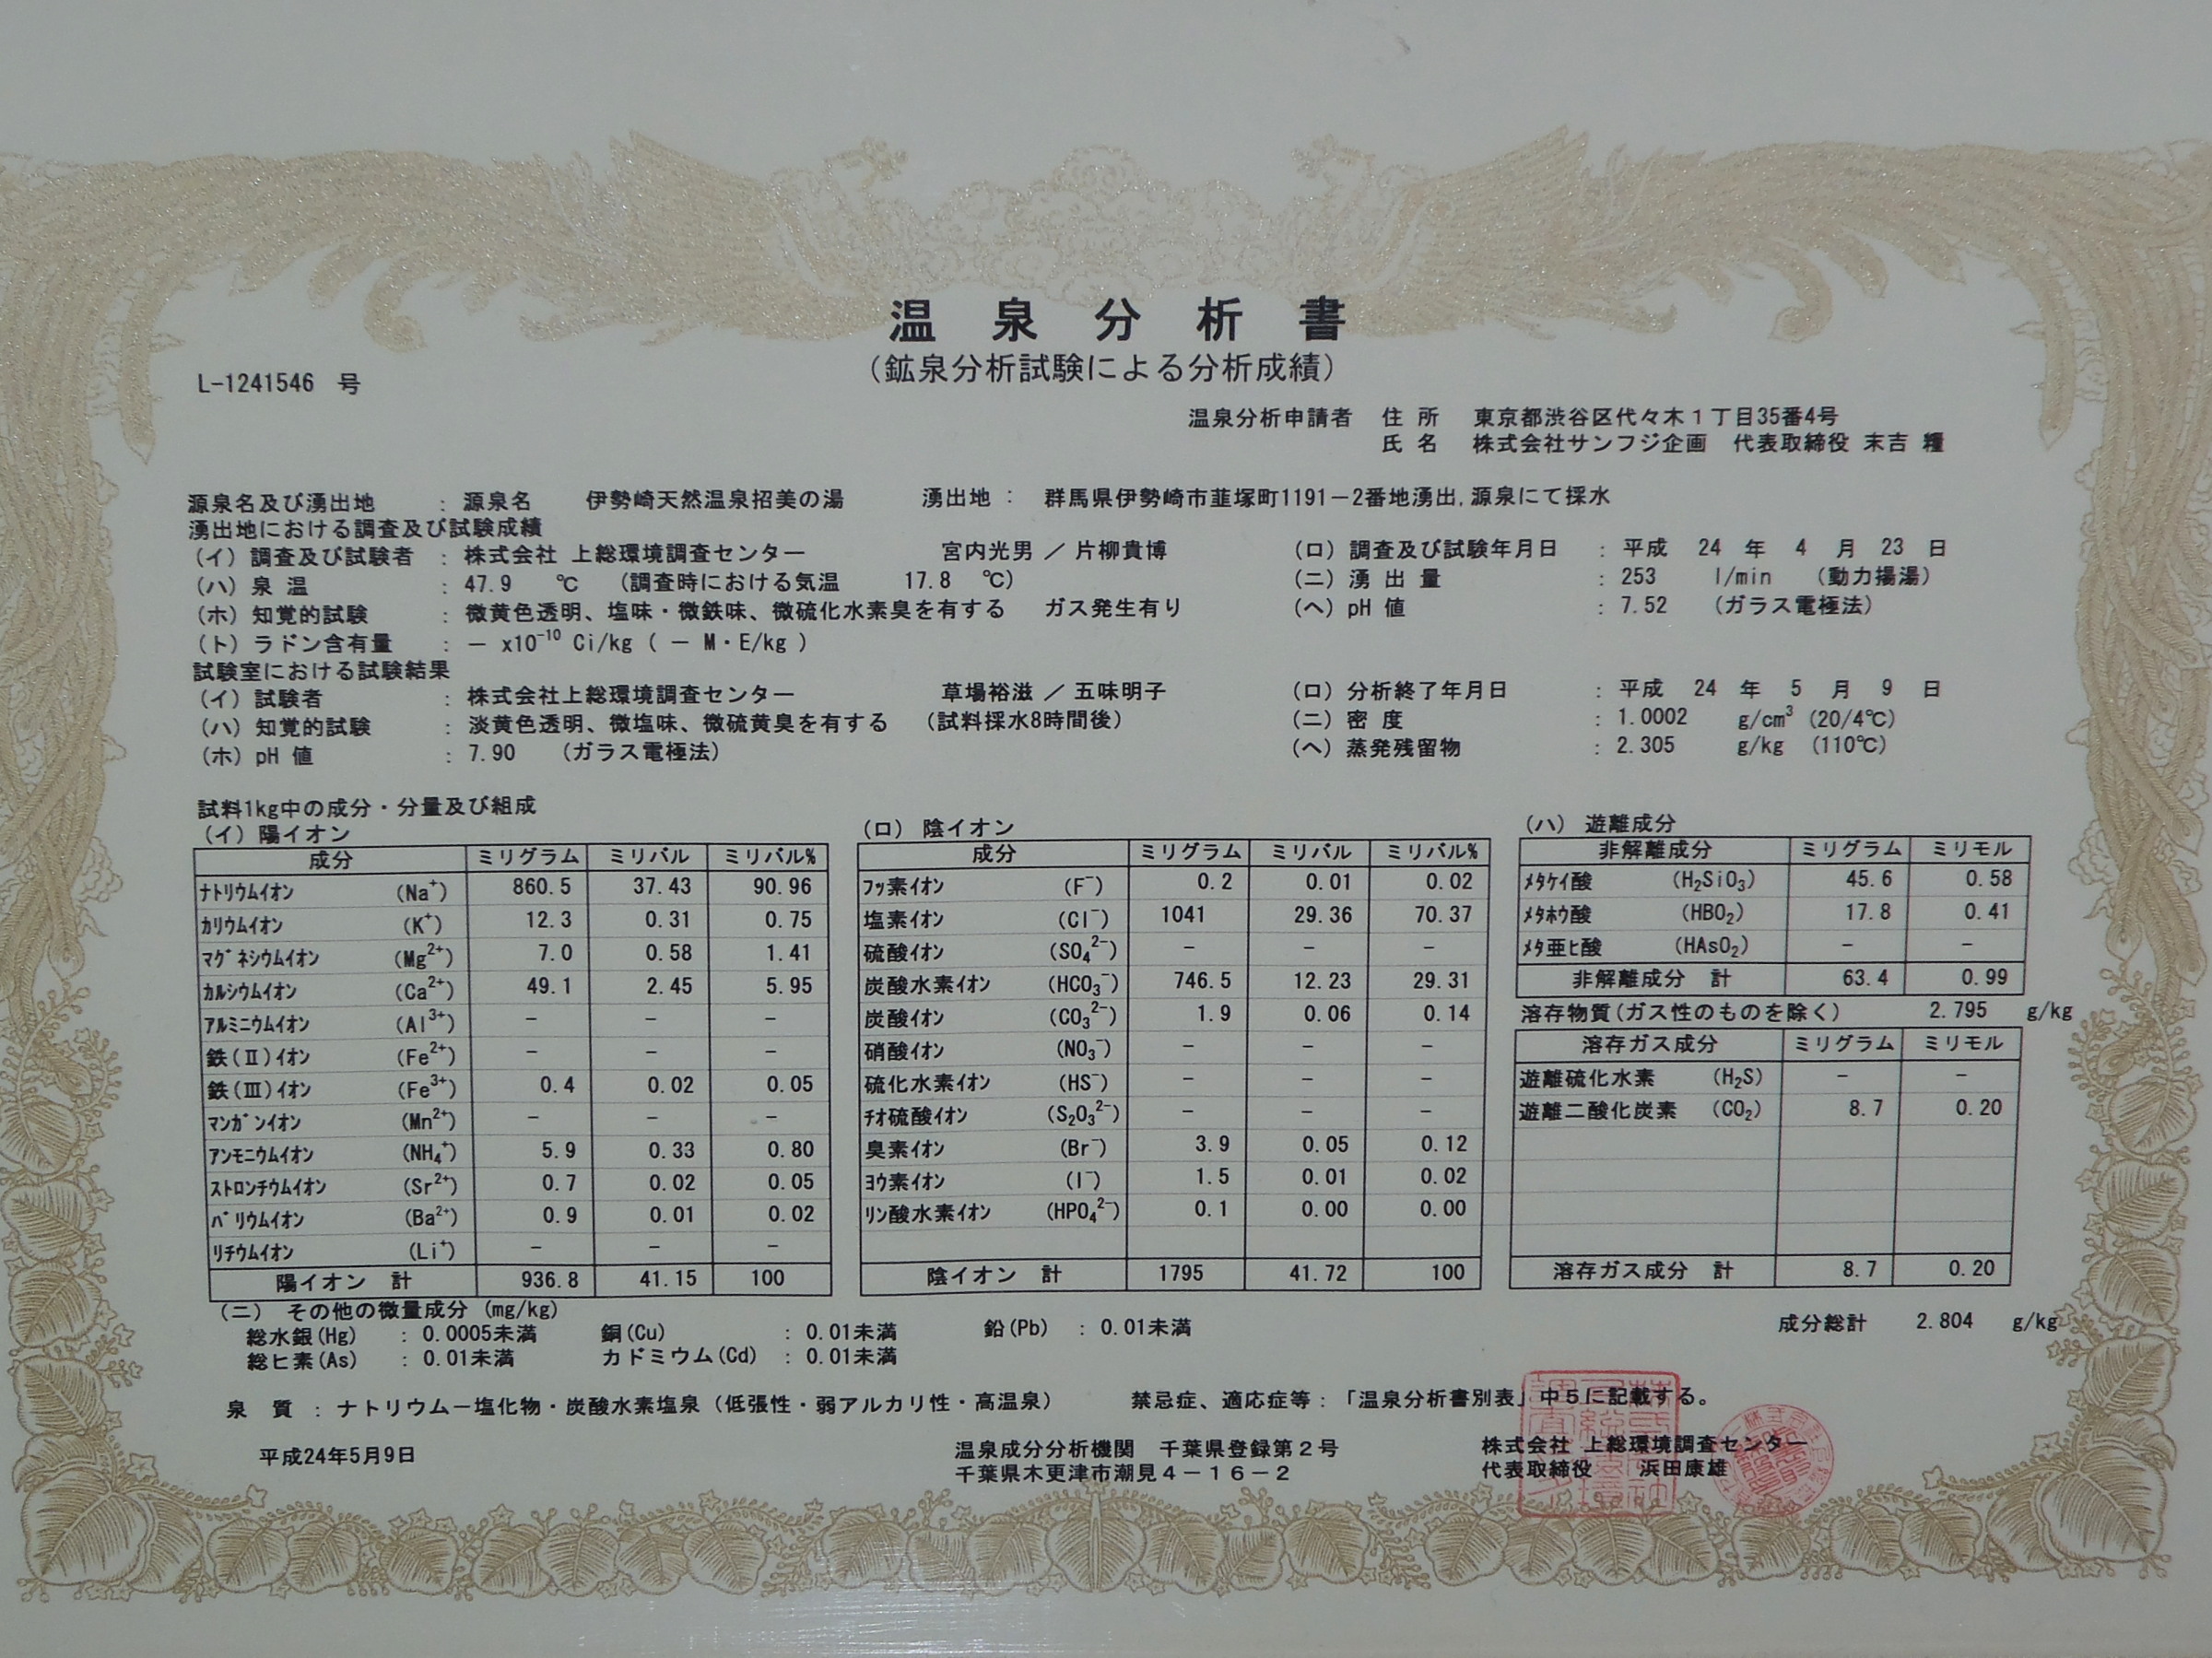 温泉分析書
(鉱泉分析試験による分析成績)
L-1241546 号
温泉分析申請者 住所 東京都渋谷区代々木1丁目35番4号
氏名 株式会社サンフジ企画 代表取締役 末吉 糧
源泉名及び湧出地 : 源泉名 伊勢崎天然温泉招美の湯 湧出地 : 群馬県伊勢崎市韮塚町1191-2番地湧出,源泉にて採水
湧出地における調査及び試験成績
(イ) 調査及び試験者 : 株式会社 上総環境調査センター 宮内光男 / 片柳貴博 (ロ) 調査及び試験年月日 : 平成 24 年 4 月 23 日
(ハ) 泉温 : 47.9 ℃ (調査時における気温 17.8 ℃) (ニ) 湧出量 : 253 l/min (動力揚湯)
(ホ) 知覚的試験 : 微黄色透明、塩味・微鉄味、微硫化水素臭を有する ガス発生有り (ヘ) pH 値 : 7.52 (ガラス電極法)
(ト) ラドン含有量 : - x10⁻¹⁰ Ci/kg ( - M・E/kg )
試験室における試験結果
(イ) 試験者 : 株式会社上総環境調査センター 草場裕滋 / 五味明子 (ロ) 分析終了年月日 : 平成 24 年 5 月 9 日
(ハ) 知覚的試験 : 淡黄色透明、微塩味、微硫黄臭を有する (試料採水8時間後) (ニ) 密度 : 1.0002 g/cm³ (20/4℃)
(ホ) pH 値 : 7.90 (ガラス電極法) (ヘ) 蒸発残留物 : 2.305 g/kg (110℃)
試料1kg中の成分・分量及び組成
(イ) 陽イオン
成分 ミリグラム ミリバル ミリバル%
ナトリウムイオン (Na⁺) 860.5 37.43 90.96
カリウムイオン (K⁺) 12.3 0.31 0.75
マグネシウムイオン (Mg²⁺) 7.0 0.58 1.41
カルシウムイオン (Ca²⁺) 49.1 2.45 5.95
アルミニウムイオン (Al³⁺) - - -
鉄(Ⅱ)イオン (Fe²⁺) - - -
鉄(Ⅲ)イオン (Fe³⁺) 0.4 0.02 0.05
マンガンイオン (Mn²⁺) - - -
アンモニウムイオン (NH₄⁺) 5.9 0.33 0.80
ストロンチウムイオン (Sr²⁺) 0.7 0.02 0.05
バリウムイオン (Ba²⁺) 0.9 0.01 0.02
リチウムイオン (Li⁺) - - -
陽イオン 計 936.8 41.15 100
(ロ) 陰イオン
成分 ミリグラム ミリバル ミリバル%
フッ素イオン (F⁻) 0.2 0.01 0.02
塩素イオン (Cl⁻) 1041 29.36 70.37
硫酸イオン (SO₄²⁻) - - -
炭酸水素イオン (HCO₃⁻) 746.5 12.23 29.31
炭酸イオン (CO₃²⁻) 1.9 0.06 0.14
硝酸イオン (NO₃⁻) - - -
硫化水素イオン (HS⁻) - - -
チオ硫酸イオン (S₂O₃²⁻) - - -
臭素イオン (Br⁻) 3.9 0.05 0.12
ヨウ素イオン (I⁻) 1.5 0.01 0.02
リン酸水素イオン (HPO₄²⁻) 0.1 0.00 0.00
陰イオン 計 1795 41.72 100
(ハ) 遊離成分
非解離成分 ミリグラム ミリモル
メタケイ酸 (H₂SiO₃) 45.6 0.58
メタホウ酸 (HBO₂) 17.8 0.41
メタ亜ヒ酸 (HAsO₂) - -
非解離成分 計 63.4 0.99
溶存物質(ガス性のものを除く) 2.795 g/kg
溶存ガス成分 ミリグラム ミリモル
遊離硫化水素 (H₂S) - -
遊離二酸化炭素 (CO₂) 8.7 0.20
溶存ガス成分 計 8.7 0.20
成分総計 2.804 g/kg
(ニ) その他の微量成分 (mg/kg)
総水銀(Hg) : 0.0005未満 銅(Cu) : 0.01未満 鉛(Pb) : 0.01未満
総ヒ素(As) : 0.01未満 カドミウム(Cd) : 0.01未満
泉質 : ナトリウム-塩化物・炭酸水素塩泉 (低張性・弱アルカリ性・高温泉) 禁忌症、適応症等:「温泉分析書別表」中5に記載する。
平成24年5月9日
温泉成分分析機関 千葉県登録第2号 株式会社 上総環境調査センター
千葉県木更津市潮見4-16-2 代表取締役 浜田康雄